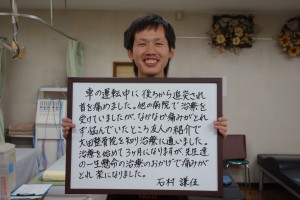 車の運転中に後ろから追突され
首を痛めました。他の病院で治療を
受けていましたが、なかなか痛みがとれ
ず悩んでいたところ友人の紹介で
太田整骨院を知り治療に通いました。
治療を始めて3ヶ月になりますが、先生達
の一生懸命の治療のおかげで痛みが
とれ楽になりました。
石村 謙任